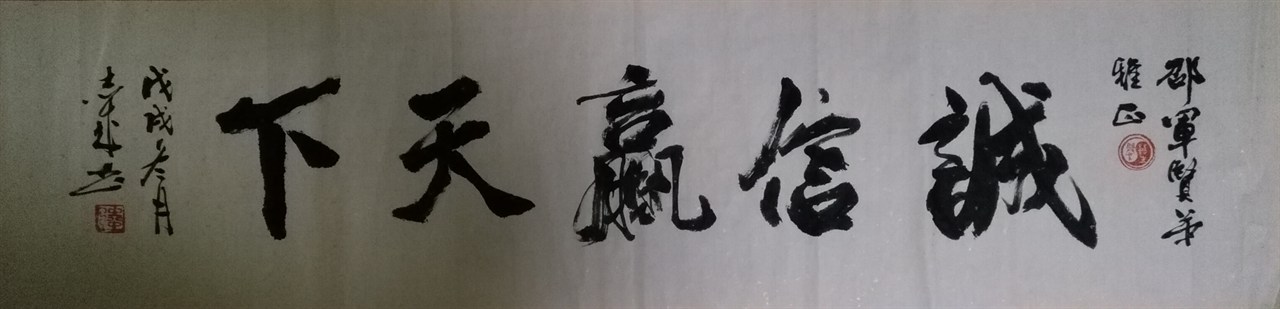 邵軍賢弟
雅正
誠信贏天下
戊戌冬月